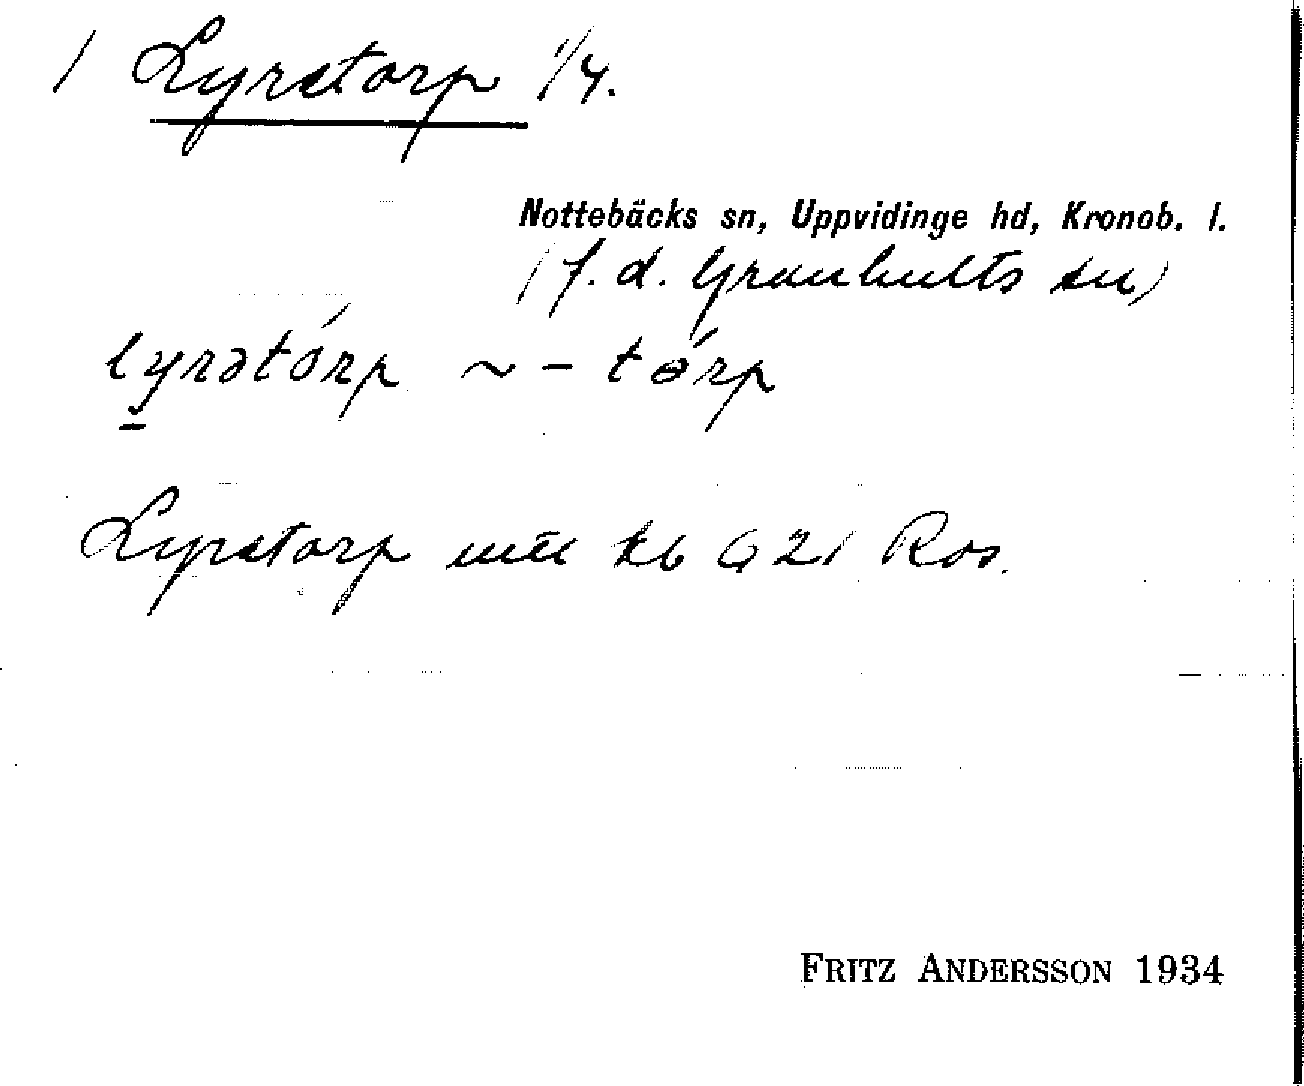 1 Lyrstorp 1/4.
Nottebäcks sn, Uppvidinge hd, Kronob. l.
(f. d. Granhults sn)
lyrətórp ~ - tórp
Lyrstorp mtl kb Q 21 Ros.
FRITZ ANDERSSON 1934